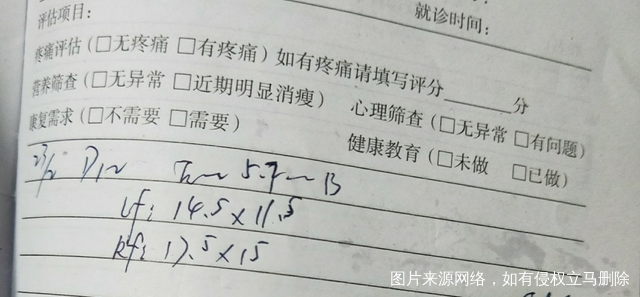 评估项目：
就诊时间：
疼痛评估（□无疼痛 □有疼痛）如有疼痛请填写评分______分
营养筛查（□无异常 □近期明显消瘦） 心理筛查（□无异常 □有问题）
康复需求（□不需要 □需要） 健康教育（□未做 □已做）
5.7 B
Lf: 14.5×11.5
Rf: 17.5×15
图片来源网络，如有侵权立马删除